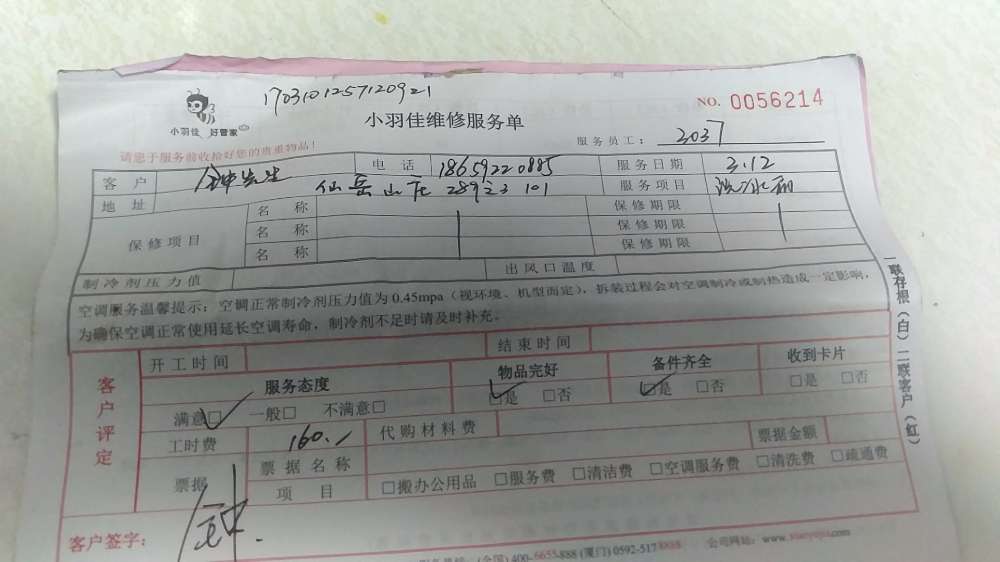 1703101257120921
NO. 0056214
小羽佳 好管家
小羽佳维修服务单
服务员工: 3037
请您于服务前收拾好您的贵重物品!
客户 钟先生 电话 18659220885 服务日期 3.12
地址 仙岳山庄 服务项目 洗冰箱
保修项目 名称 保修期限
名称 保修期限
名称 保修期限
制冷剂压力值 出风口温度
空调服务温馨提示:空调正常制冷剂压力值为0.45mpa(视环境、机型而定),拆装过程会对空调制冷或制热造成一定影响,
为确保空调正常使用延长空调寿命,制冷剂不足时请及时补充。
一联存根(白)二联客户(红)
客户评定
开工时间 结束时间
服务态度 物品完好 备件齐全 收到卡片
满意□ 一般□ 不满意□ □是 □否 □是 □否 □是 □否
工时费 160. 代购材料费
票据 票据名称 票据金额
项目 □搬办公用品 □服务费 □清洁费 □空调服务费 □清洗费 □疏通费
客户签字: 钟
(全国)400-6655-888 (厦门)0592-5178888 公司网站:www.xiaoyujia.com